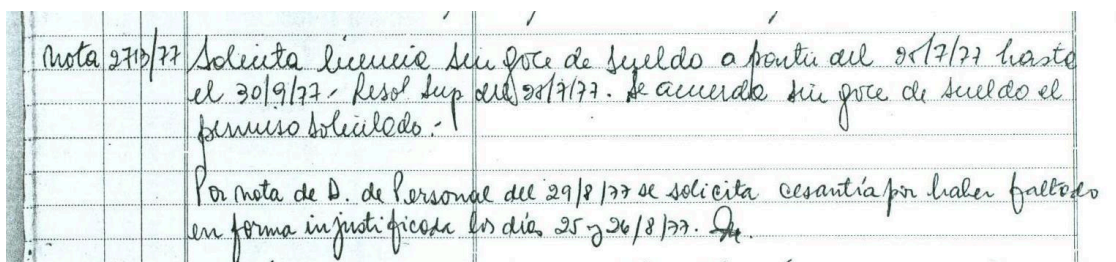 nota 2713/77 Solicita licencia sin goce de sueldo a partir del 28/7/77 hasta
el 30/9/77. Resol Sup del 28/7/77. Se acuerda sin goce de sueldo el
permiso solicitado.-
Por nota de D. de Personal del 29/8/77 se solicita cesantía por haber faltado
en forma injustificada los días 25 y 26/8/77.